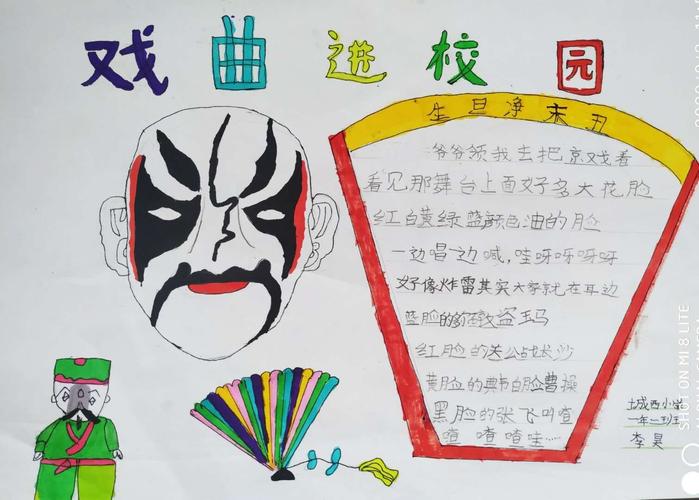 戏曲进校园
生旦净末丑
爷爷领我去把京戏看
看见那舞台上面好多大花脸
红白黄绿蓝颜色油的脸
一边唱一边喊,哇呀呀呀呀
好像炸雷其实大家就在耳边
蓝脸的窦尔敦盗玛
红脸的关公战长沙
黄脸的典韦白脸曹操
黑脸的张飞叫喳
喳喳喳哇……
土城西小学
一年一班
李昊
SHOT ON MI 8 LITE